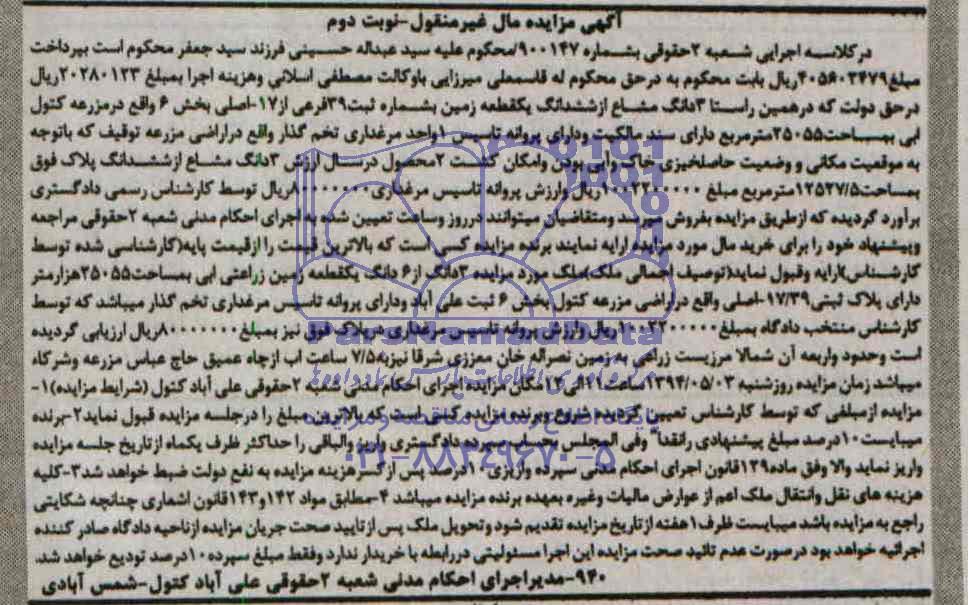 آگهی مزایده مال غیرمنقول-نوبت دوم
درکلاسه اجرایی شعبه ۲حقوقی بشماره ۹۰۰۱۴۷/محکوم علیه سید عبداله حسینی فرزند سید جعفر محکوم است بپرداخت
مبلغ۴۰۵۶۰۳۴۷۹ریال بابت محکوم به درحق محکوم له قاسمعلی میرزایی باوکالت مصطفی اسلانی وهزینه اجرا بمبلغ ۲۰۲۸۰۱۲۳ریال
درحق دولت که درهمین راستا ۳دانگ مشاع ازششدانگ یکقطعه زمین بشماره ثبت۳۹فرعی از۱۷-اصلی بخش ۶ واقع درمزرعه کتول
ابی بمساحت۲۵۰۵۵مترمربع دارای سند مالکیت ودارای پروانه تاسیس ۱واحد مرغداری تخم گذار واقع دراراضی مزرعه توقیف که باتوجه
به موقعیت مکانی و وضعیت حاصلخیزی خاک وابی بودن وامکان کشت ۲محصول درسال ارزش ۳دانگ مشاع ازششدانگ پلاک فوق
بمساحت۱۲۵۲۷/۵مترمربع مبلغ ۱۰۰۲۲۰۰۰۰۰ریال وارزش پروانه تاسیس مرغداری۸۰۰۰۰۰۰۰ریال توسط کارشناس رسمی دادگستری
برآورد گردیده که ازطریق مزایده بفروش میرسد ومتقاضیان میتوانند درروز وساعت تعیین شده به اجرای احکام مدنی شعبه ۲حقوقی مراجعه
وپیشنهاد خود را برای خرید مال مورد مزایده ارایه نمایند برنده مزایده کسی است که بالاترین قیمت را ازقیمت پایه(کارشناسی شده توسط
کارشناس)ارایه وقبول نماید(توصیف اجمالی ملک)ملک مورد مزایده ۳دانگ از۶ دانگ یکقطعه زمین زراعتی ابی بمساحت۲۵۰۵۵هزارمتر
دارای پلاک ثبتی۱۷/۳۹-اصلی واقع دراراضی مزرعه کتول بخش ۶ ثبت علی آباد ودارای پروانه تاسیس مرغداری تخم گذار میباشد که توسط
کارشناس منتخب دادگاه بمبلغ۱۰۰۲۲۰۰۰۰۰ریال وارزش پروانه تاسیس مرغداری درپلاک فوق نیز بمبلغ۸۰۰۰۰۰۰۰ریال ارزیابی گردیده
است وحدود واربعه آن شمالا مرزیست زراعی به زمین نصراله خان معززی شرقا نیزبه۷/۵ ساعت اب ازچاه عمیق حاج عباس مزرعه وشرکاه
میباشد زمان مزایده روزشنبه ۱۳۹۴/۰۵/۰۳ساعت۱۱الی۱۲مکان مزایده اجرای احکام مدنی شعبه ۲حقوقی علی آباد کتول (شرایط مزایده)۱-
مزایده ازمبلغی که توسط کارشناس تعیین گردیده شروع وبرنده مزایده کسی است که بالاترین مبلغ را درجلسه مزایده قبول نماید۲-برنده
میبایست۱۰درصد مبلغ پیشنهادی رانقدا" وفی المجلس بحساب سپرده دادگستری واریز والباقی را حداکثر ظرف یکماه ازتاریخ جلسه مزایده
واریز نماید والا وفق ماده۱۲۹قانون اجرای احکام مدنی سپرده واریزی ۱۰درصد پس از کسر هزینه مزایده به نفع دولت ضبط خواهد شد۳-کلیه
هزینه های نقل وانتقال ملک اعم از عوارض مالیات وغیره بعهده برنده مزایده میباشد ۴-مطابق مواد ۱۴۲و۱۴۳قانون اشعاری چنانچه شکایتی
راجع به مزایده باشد میبایست ظرف۱هفته ازتاریخ مزایده تقدیم شود وتحویل ملک پس از تایید صحت جریان مزایده ازناحیه دادگاه صادر کننده
اجرائیه خواهد بود درصورت عدم تائید صحت مزایده این اجرا مسئولیتی دررابطه با خریدار ندارد وفقط مبلغ سپرده۱۰درصد تودیع خواهد شد.
۹۴۰-مدیراجرای احکام مدنی شعبه ۲حقوقی علی آباد کتول-شمس آبادی
ParsNamadData
پایگاه اطلاع رسانی مناقصه و مزایده
۰۲۱-۸۸۳۴۹۶۷۰-۵